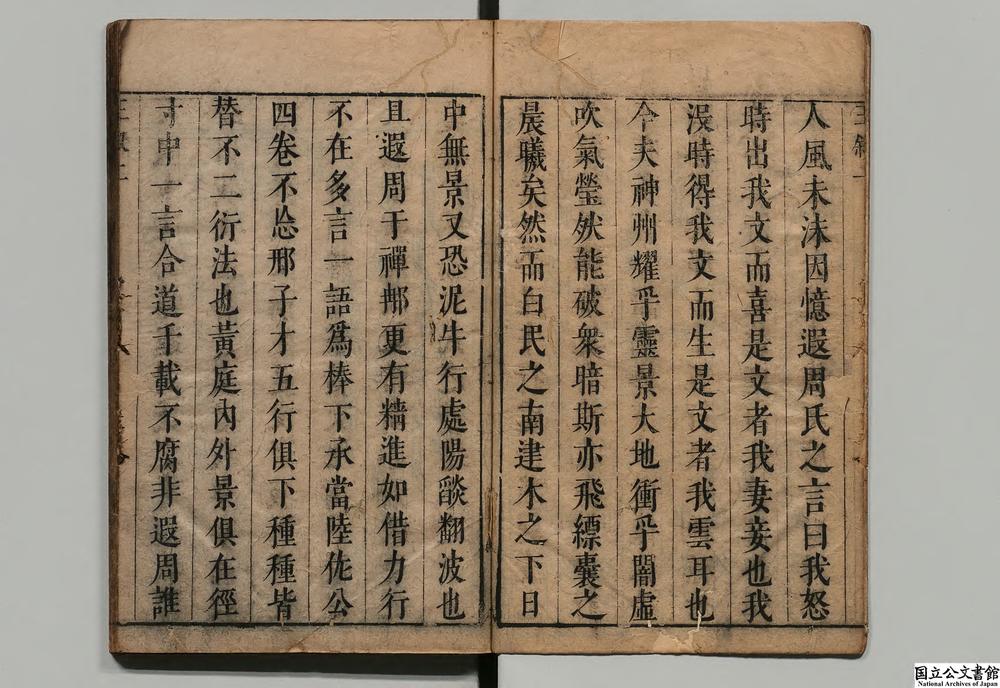 人風未沫因憶遐周氏之言曰我怒
時出我文而喜是文者我妻妾也我
沒時得我文而生是文者我雲耳也
今夫神州耀乎靈景大地衝乎闇虛
吹氣瑩然能破衆暗斯亦飛縹囊之
晨曦矣然而白民之南建木之下日
中無景又恐泥牛行處陽燄翻波也
且遐周于禪那更有精進如借力行
不在多言一語爲棒下承當陸佐公
四卷不忩邢子才五行俱下種種皆
替不二衍法也黃庭內外景俱在徑
寸中一言合道千載不腐非遐周誰
国立公文書館
National Archives of Japan